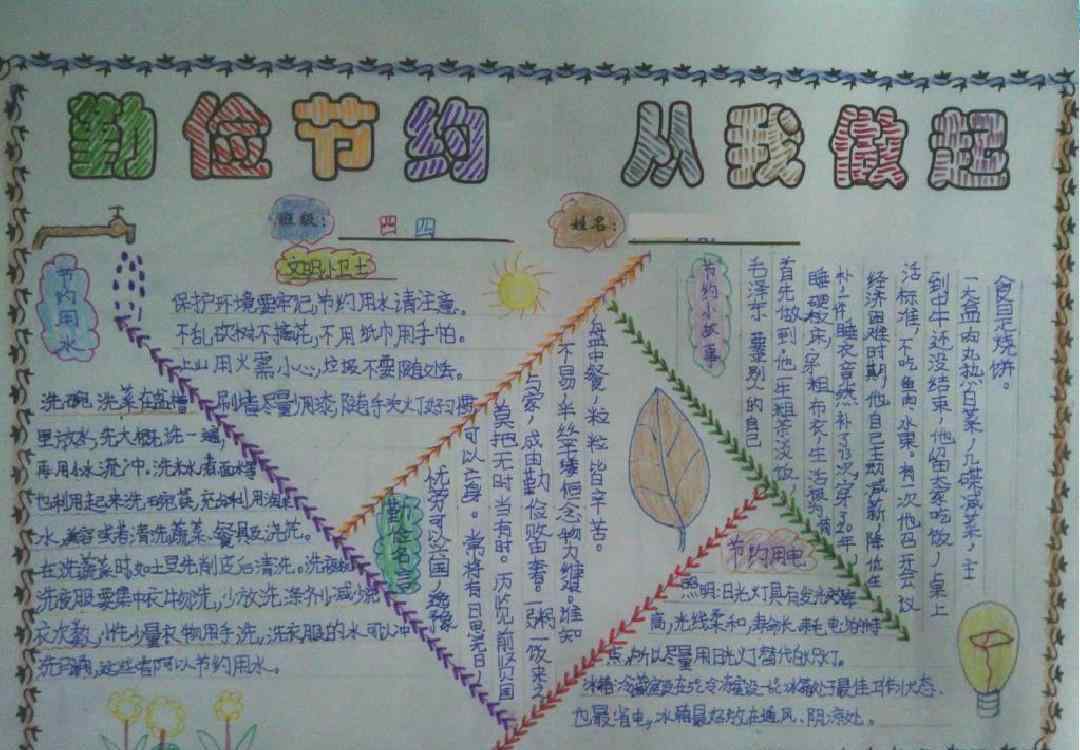 勤俭节约 从我做起
班级：四 四
姓名：
文明小卫士
节约用水
保护环境要牢记,节约用水请注意.
不乱砍树不摘花,不用纸巾用手帕。
上山用火需小心,垃圾不要随处丢。
刷墙尽量少用漆,随手关灯好习惯
洗碗、洗菜在盆槽
里放水,先大概洗一遍,
再用小水流冲.洗米水、煮面水等
也利用起来洗碗筷,充分利用淘米
水,兼容或者清洗蔬菜、餐具及浇花。
在洗蔬菜时,如土豆先削皮后清洗。洗衣机
洗衣服要集中衣物洗,少放洗涤剂,减少漂
衣次数,小件少量衣物用手洗,洗衣服的水可以冲
洗马桶,这些者阿以节约用水。
勤俭名言
盘中餐,粒粒皆辛苦。
不易,半丝半缕恒念物力维艰。谁知
与家,成由勤俭败由奢。一粥一饭来之
莫把无时当有时。历览前贤国
可以亡身。常将有日思无日,
忧劳可以兴国,逸豫
节约小故事
毛泽东 要求别人的自己
首先做到,他一年粗茶淡饭,
睡硬板床,穿粗布衣,生活极为简
补一件睡衣竟然补了73次,穿了20年,
经济困难时期,他自己主动减薪、降低生
活标准,不吃鱼肉、水果。有一次他召开会议
到中午还没结束,他留大家吃饭,桌上
一大盆肉丸熬白菜,几碟咸菜,主
食是烧饼。
节约用电
照明:日光灯具有发光效率
高,光线柔和,寿命长,耗电少的特
点,所以尽量用日光灯替代白炽灯。
也最省电,冰箱最好放在通风、阴凉处。